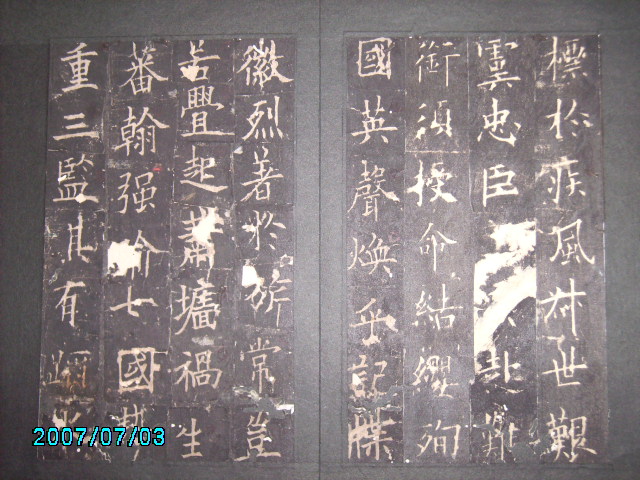 標於疾風忖世艱
虞忠臣赴難
銜須授命結纓殉
國英聲煥乎記牒
徽烈著於旂常豈
若疊起蕭墻禍生
蕃翰强七國
重三監其有
2007/07/03